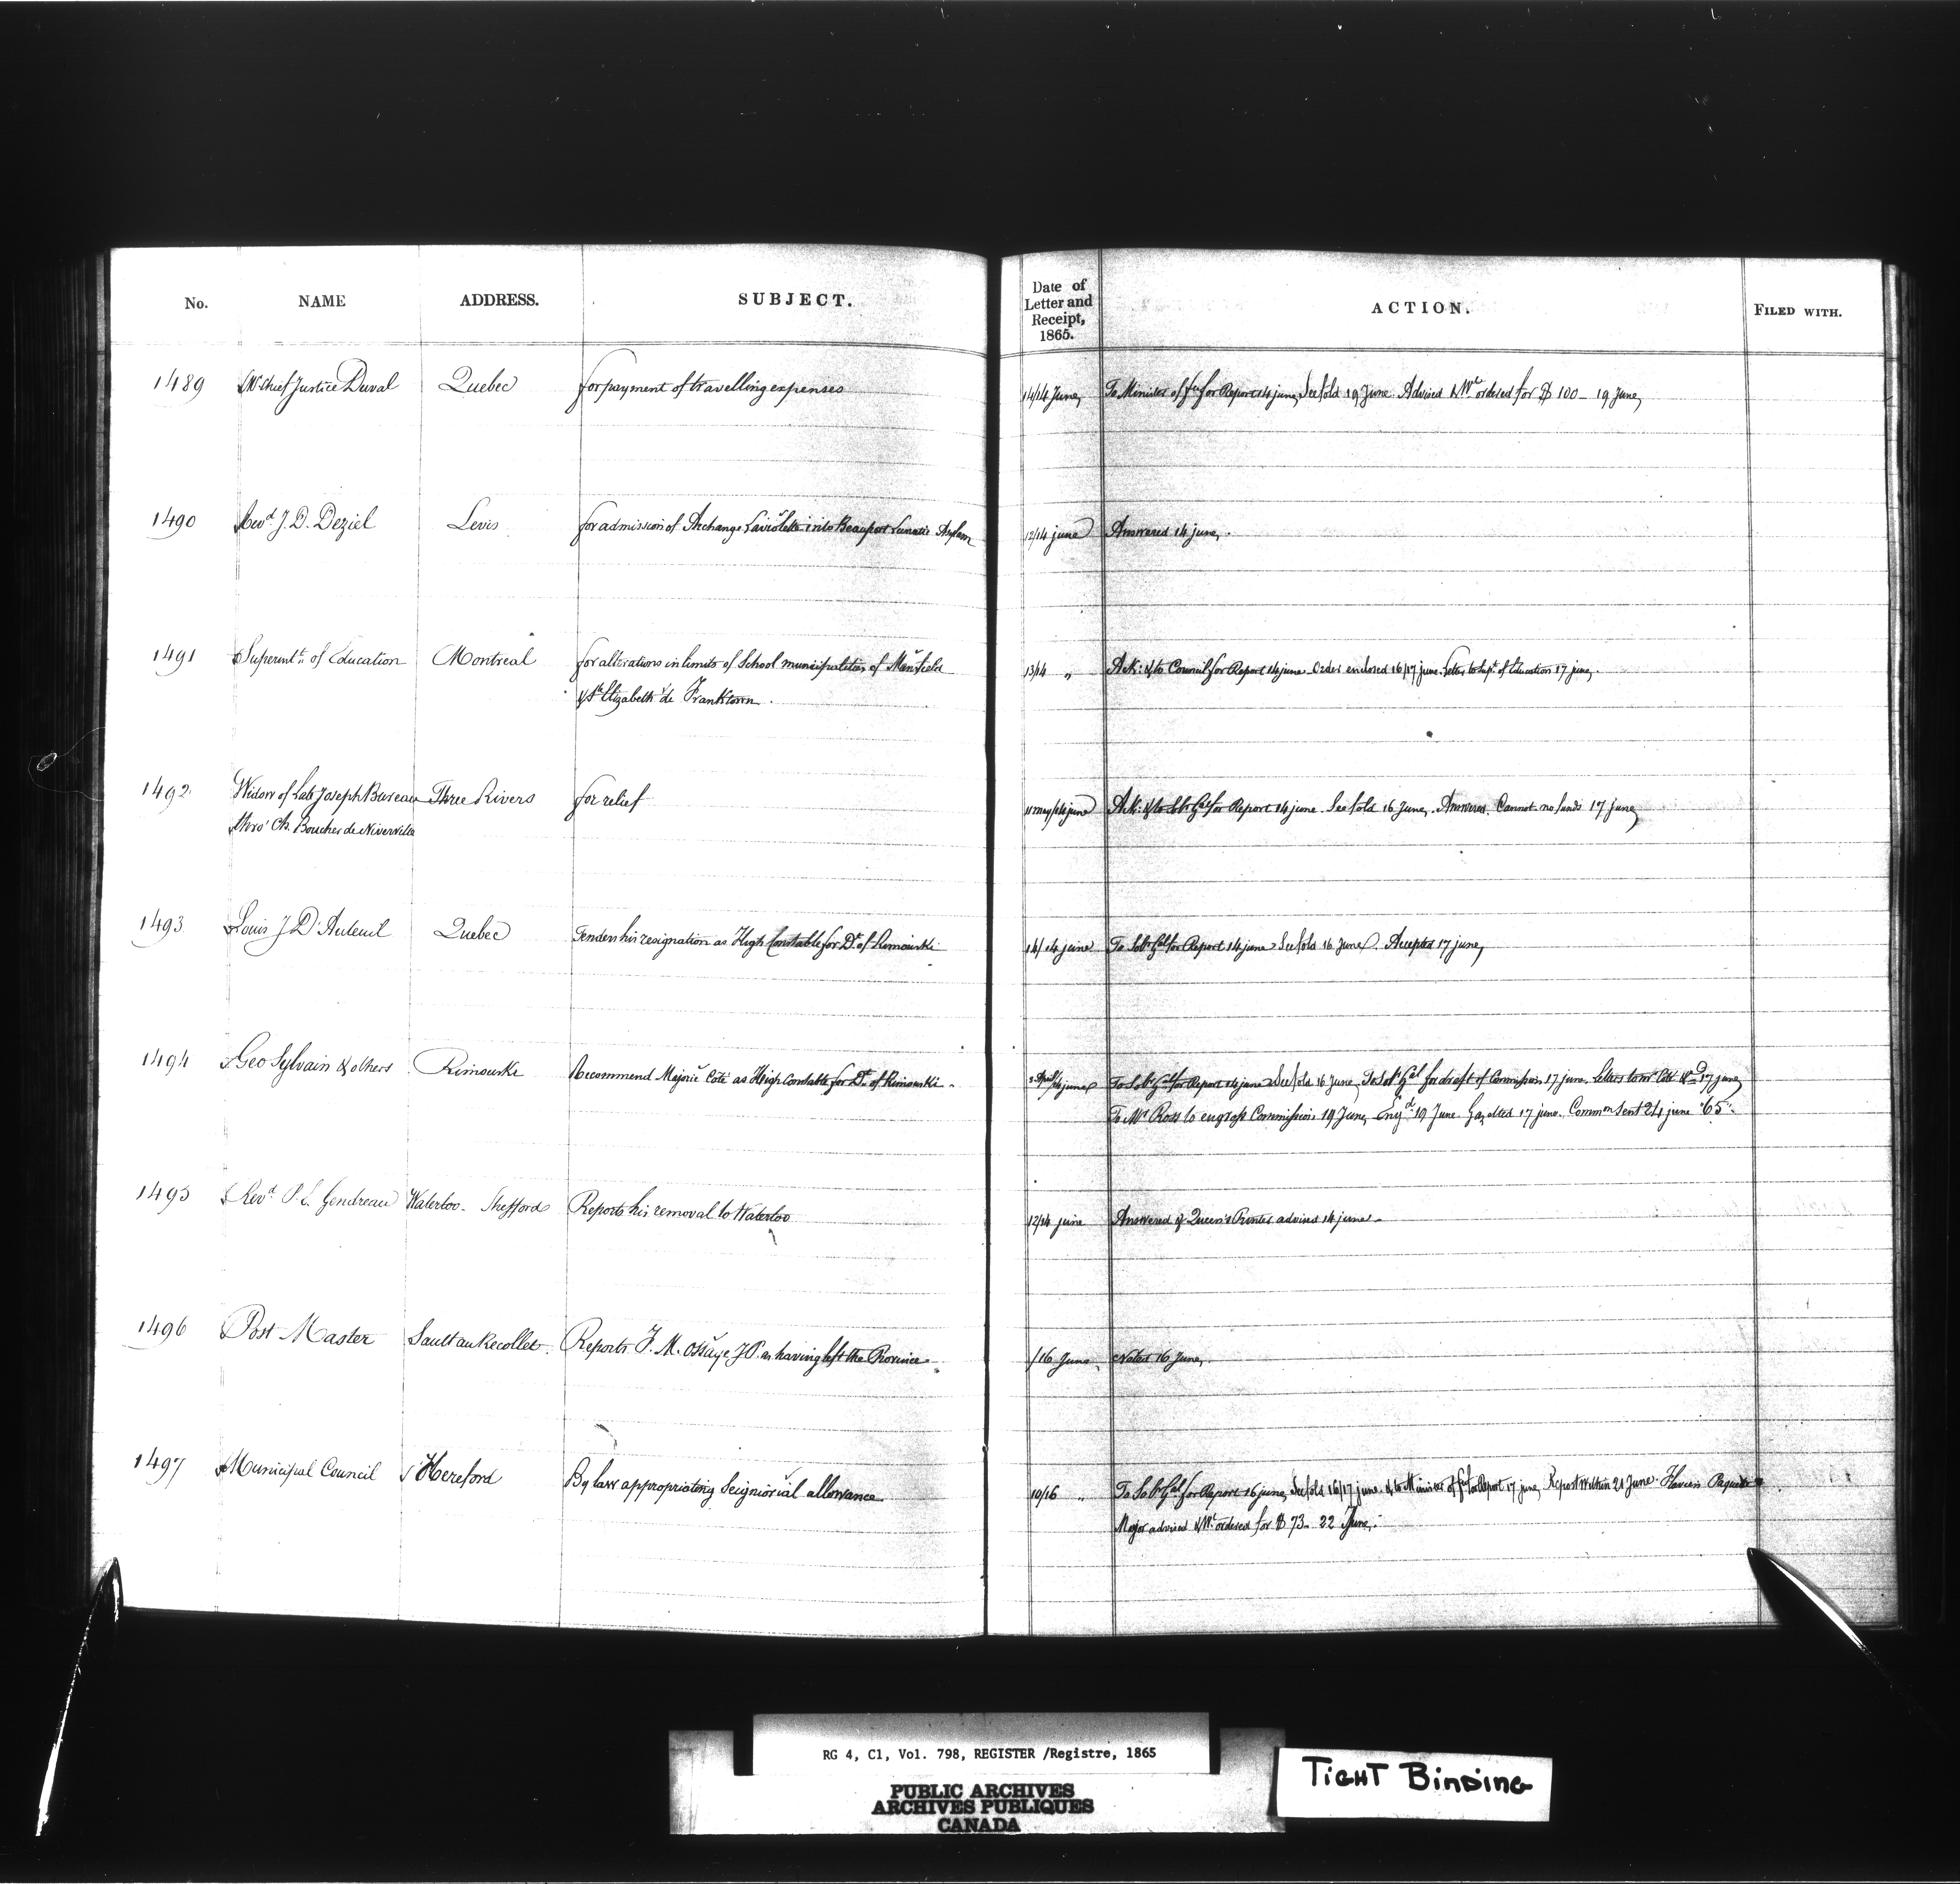 No. NAME ADDRESS. SUBJECT. Date of Letter and Receipt, 1865. ACTION. FILED WITH.
1489 Chief Justice Duval Quebec for payment of travelling expenses 14/14 June To Minister of for Report 14 june See fold 19 June. Advised & Wt ordered for $ 100 – 19 June
1490 Revd J. D. Deziel Levis for admission of Archange Laviolette into Beauport Lunatic Asylum 12/14 june Answered 14 june.
1491 Superintt of Education Montreal for alterations in limits of School municipalities of Mansfield 13/14 " Ack: & to Council for Report 14 june Order enclosed 16/17 june. Letter to Supt of Education 17 june.
& St Elizabeth de Franktown.
1492 Widow of Late Joseph Bureau Three Rivers for relief 11 may/14 june Ack: & to Solr Genl for Report 14 june. See fold 16 June. Answered. Cannot no funds 17 june
thro' Ch. Boucher de Niverville
1493 Louis J D'Auteuil Quebec Tenders his resignation as High Constable for Dt of Rimouski 14/14 june To Solr Genl for Report 14 june See fold 16 June. Accepted 17 june
1494 Geo Sylvain & others Rimouski Recommend Majorie Coté as High Constable for Dt of Rimouski. April/14 june To Solr Genl for Report 14 june See fold 16 June, To Solr Genl for draft of Commission 17 june. 17 june
To Mr Ross to engross Commission 19 June, Engd 19 June. Gazetted 17 june. Commn Sent 24 june "65".
1495 Revd P. E. Gendreau Waterloo – Shefford Reports his removal to Waterloo 12/14 june Answered & Queen's Printer advised 14 june.
1496 Post Master Sault au Recollet. Reports F. M. Ossaye J.P. as having left the Province. /16 June Noted 16 June.
1497 Municipal Council Hereford By law appropriating Seigniorial allowance. 10/16 " To Solr Genl for Report 16 june, See fold 16/17 june. & to Minister of for Report 17 june, Report within 21 June. Paquette
Major advised & Wt ordered for $ 73– 22 June.
RG 4, C1, Vol. 798, REGISTER /Registre, 1865
PUBLIC ARCHIVES
ARCHIVES PUBLIQUES
CANADA
TIGHT BINDING